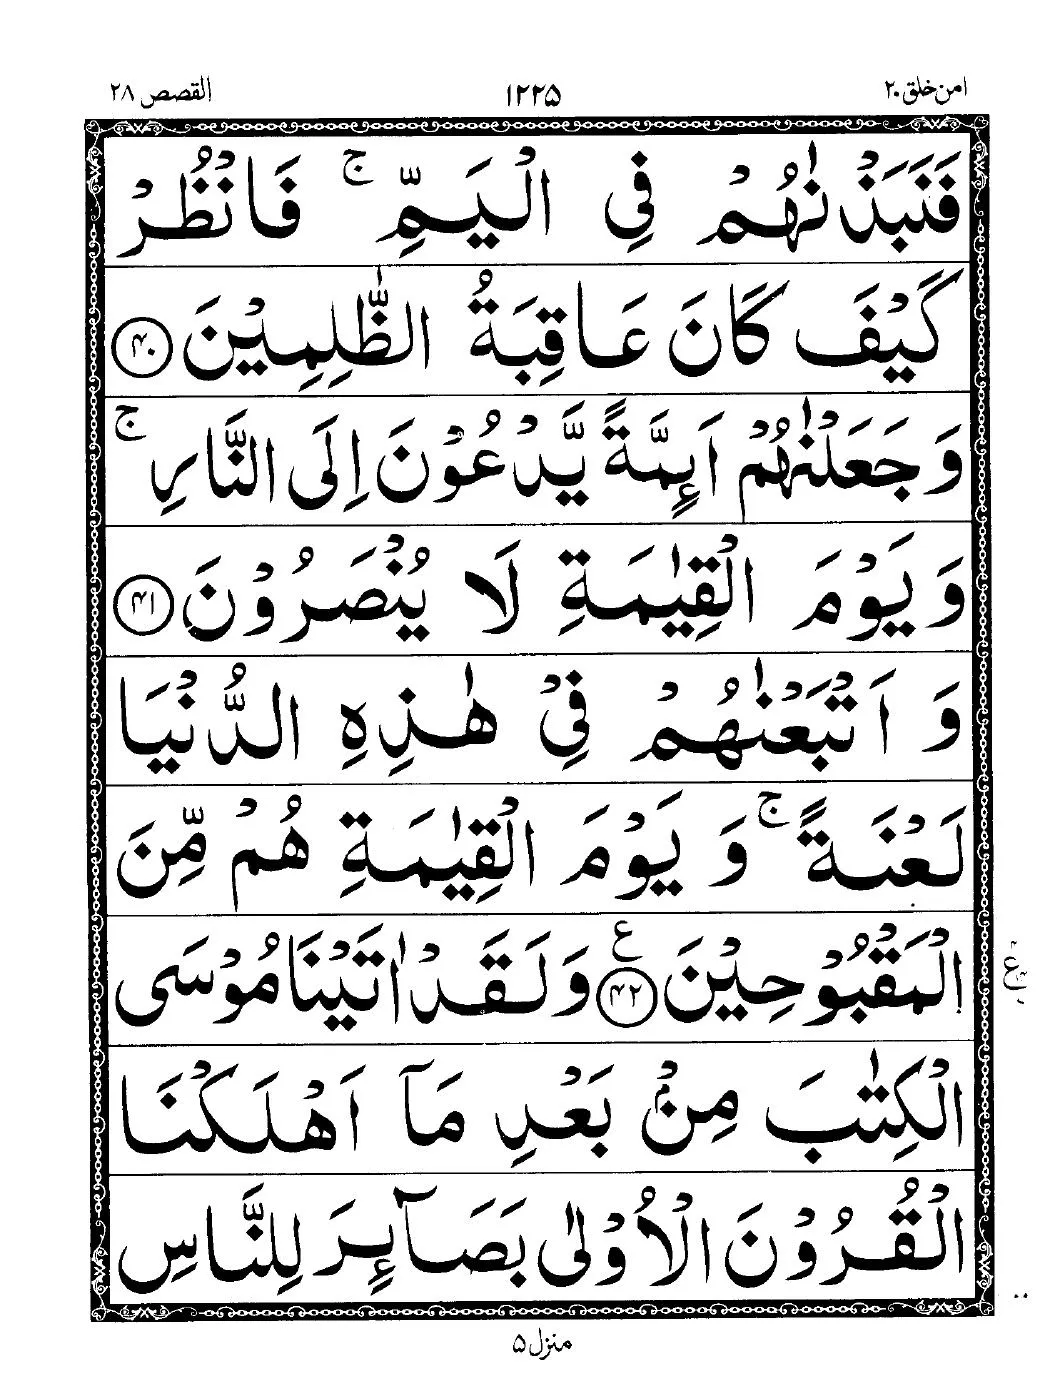 امن خلق ۲۰
۱۲۲۵
القصص ۲۸
فَنَبَذْنٰهُمْ فِی الْیَمِّ ۚ فَانْظُرْ
كَیْفَ كَانَ عَاقِبَةُ الظّٰلِمِیْنَ ﴿۴۰﴾
وَ جَعَلْنٰهُمْ اَىِٕمَّةً یَّدْعُوْنَ اِلَی النَّارِ ۚ
وَ یَوْمَ الْقِیٰمَةِ لَا یُنْصَرُوْنَ ﴿۴۱﴾
وَ اَتْبَعْنٰهُمْ فِیْ هٰذِهِ الدُّنْیَا
لَعْنَةً ۚ وَ یَوْمَ الْقِیٰمَةِ هُمْ مِّنَ
الْمَقْبُوْحِیْنَ ﴿۴۲﴾ ع وَ لَقَدْ اٰتَیْنَا مُوْسَی
الْكِتٰبَ مِنْۢ بَعْدِ مَاۤ اَهْلَكْنَا
الْقُرُوْنَ الْاُوْلٰی بَصَآىِٕرَ لِلنَّاسِ
منزل ۵